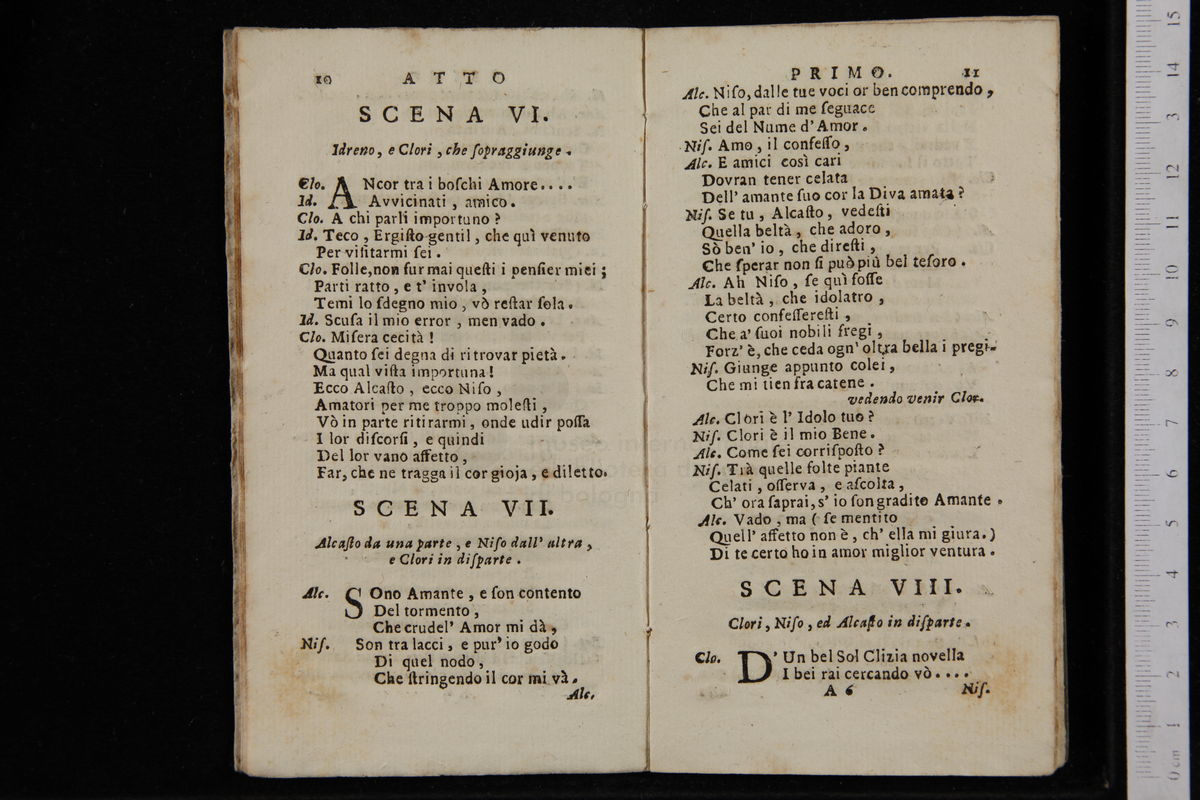 10 ATTO
SCENA VI.
Idreno, e Clori, che ſopraggiunge.
Clo. ANcor tra i boſchi Amore....
Id. Avvicinati, amico.
Clo. A chi parli importuno?
Id. Teco, Ergiſto gentil, che quì venuto
Per viſitarmi ſei.
Clo. Folle, non fur mai queſti i penſier miei;
Parti ratto, e t' invola,
Temi lo ſdegno mio, vò reſtar ſola.
Id. Scuſa il mio error, men vado.
Clo. Miſera cecità!
Quanto ſei degna di ritrovar pietà.
Ma qual viſta importuna!
Ecco Alcaſto, ecco Niſo,
Amatori per me troppo moleſti,
Vò in parte ritirarmi, onde udir poſſa
I lor diſcorſi, e quindi
Del lor vano affetto,
Far, che ne tragga il cor gioja, e diletto.
SCENA VII.
Alcaſto da una parte, e Niſo dall' altra,
e Clori in diſparte.
Alc. SOno Amante, e ſon contento
Del tormento,
Che crudel' Amor mi dà,
Niſ. Son tra lacci, e pur' io godo
Di quel nodo,
Che ſtringendo il cor mi và.
Alc.
PRIMO. 11
Alc. Niſo, dalle tue voci or ben comprendo,
Che al par di me ſeguace
Sei del Nume d' Amor.
Niſ. Amo, il confeſſo,
Alc. E amici così cari
Dovran tener celata
Dell' amante ſuo cor la Diva amata?
Niſ. Se tu, Alcaſto, vedeſti
Quella beltà, che adoro,
Sò ben' io, che direſti,
Che ſperar non ſi può più bel teſoro.
Alc. Ah Niſo, ſe quì foſſe
La beltà, che idolatro,
Certo confeſſereſti,
Che a' ſuoi nobili fregi,
Forz' è, che ceda ogn' oltra bella i pregi.
Niſ. Giunge appunto colei,
Che mi tien fra catene.
vedendo venir Clor.
Alc. Clori è l' Idolo tuo?
Niſ. Clori è il mio Bene.
Alc. Come ſei corriſpoſto?
Niſ. Trà quelle folte piante
Celati, oſſerva, e aſcolta,
Ch' ora ſaprai, s' io ſon gradito Amante.
Alc. Vado, ma (ſe mentito
Quell' affetto non è, ch' ella mi giura.)
Di te certo ho in amor miglior ventura.
SCENA VIII.
Clori, Niſo, ed Alcaſto in diſparte.
Clo. D' Un bel Sol Clizia novella
I bei rai cercando vò....
A 6 Niſ.
0 cm 1 2 3 4 5 6 7 8 9 10 11 12 13 14 15